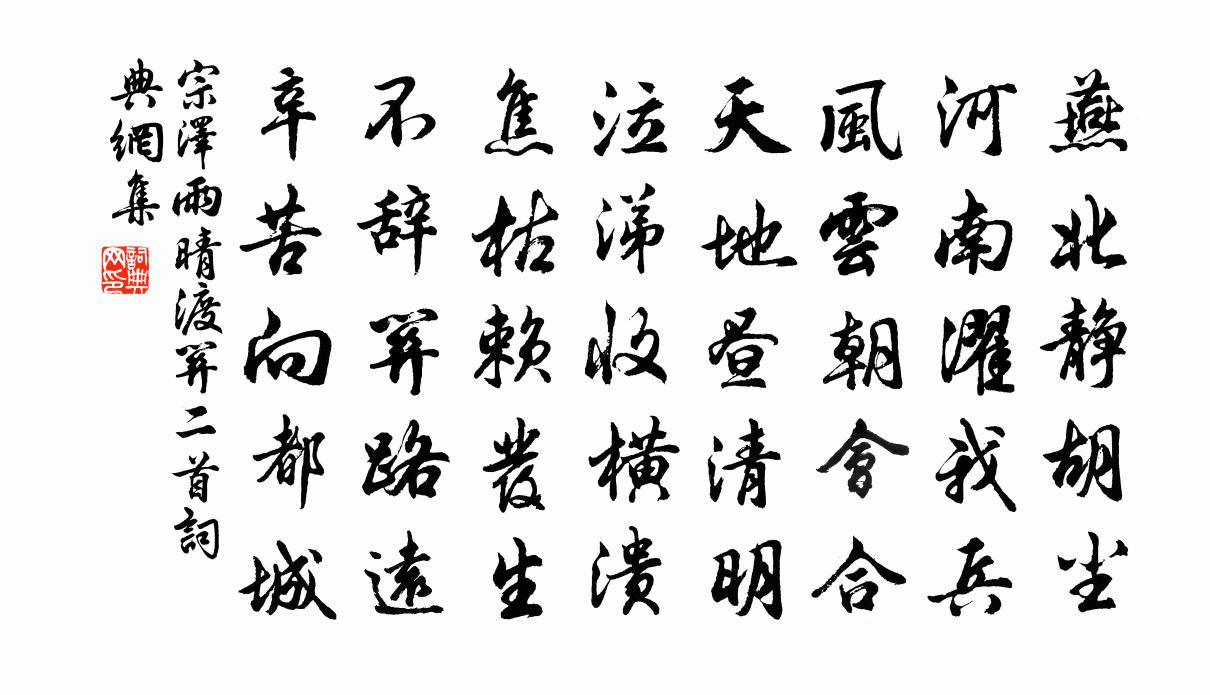 燕北静胡尘
河南濯我兵
風雲朝會合
天地昼清明
泣涕收橫潰
焦枯赖發生
不辞関路遠
辛苦向都城
宗澤雨晴渡関二首詞
典網集
詞典
网印